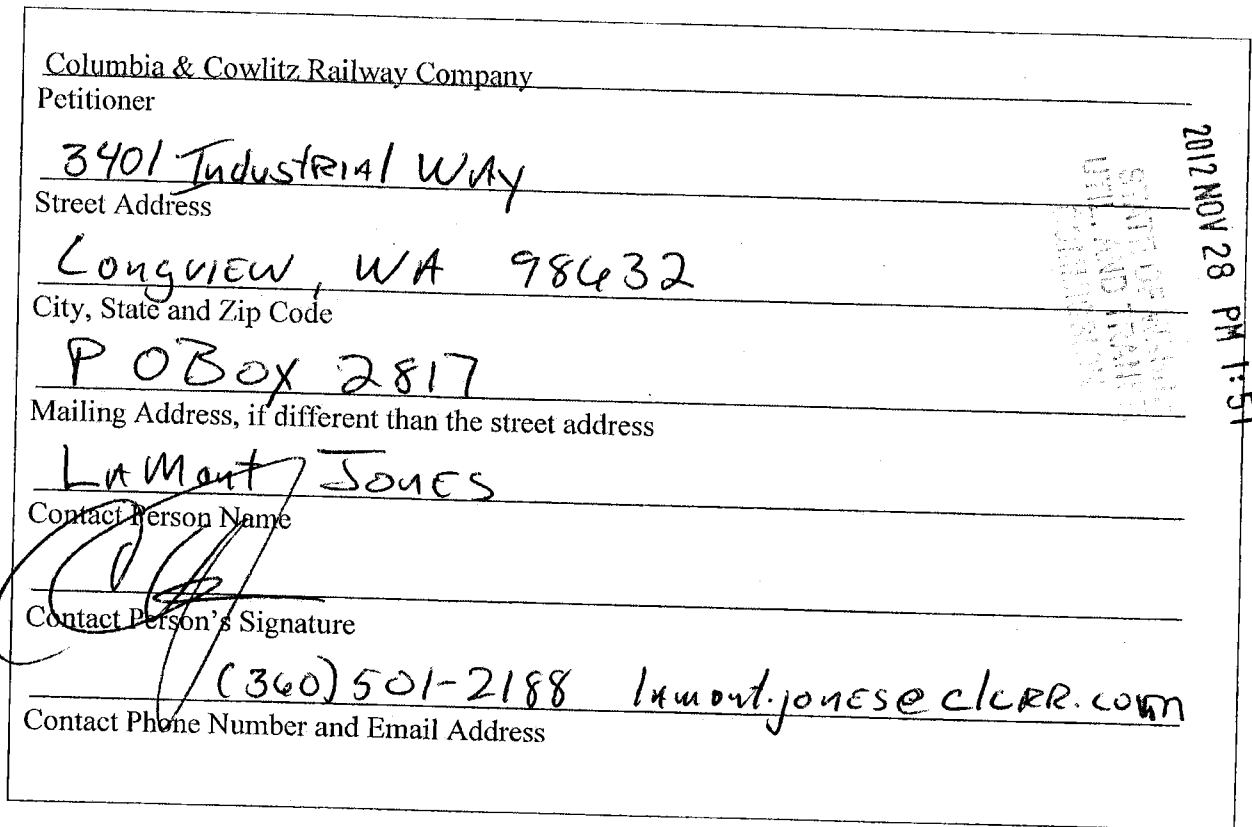 Columbia & Cowlitz Railway Company
Petitioner
3401 Industrial Way
Street Address
Longview, WA 98632
City, State and Zip Code
P O Box 2817
Mailing Address, if different than the street address
LaMont Jones
Contact Person Name
Contact Person's Signature
(360) 501-2188 lamont.jones@clcRR.com
Contact Phone Number and Email Address
2012 NOV 28 PM 1:51
STATE OF
UTIL. AND